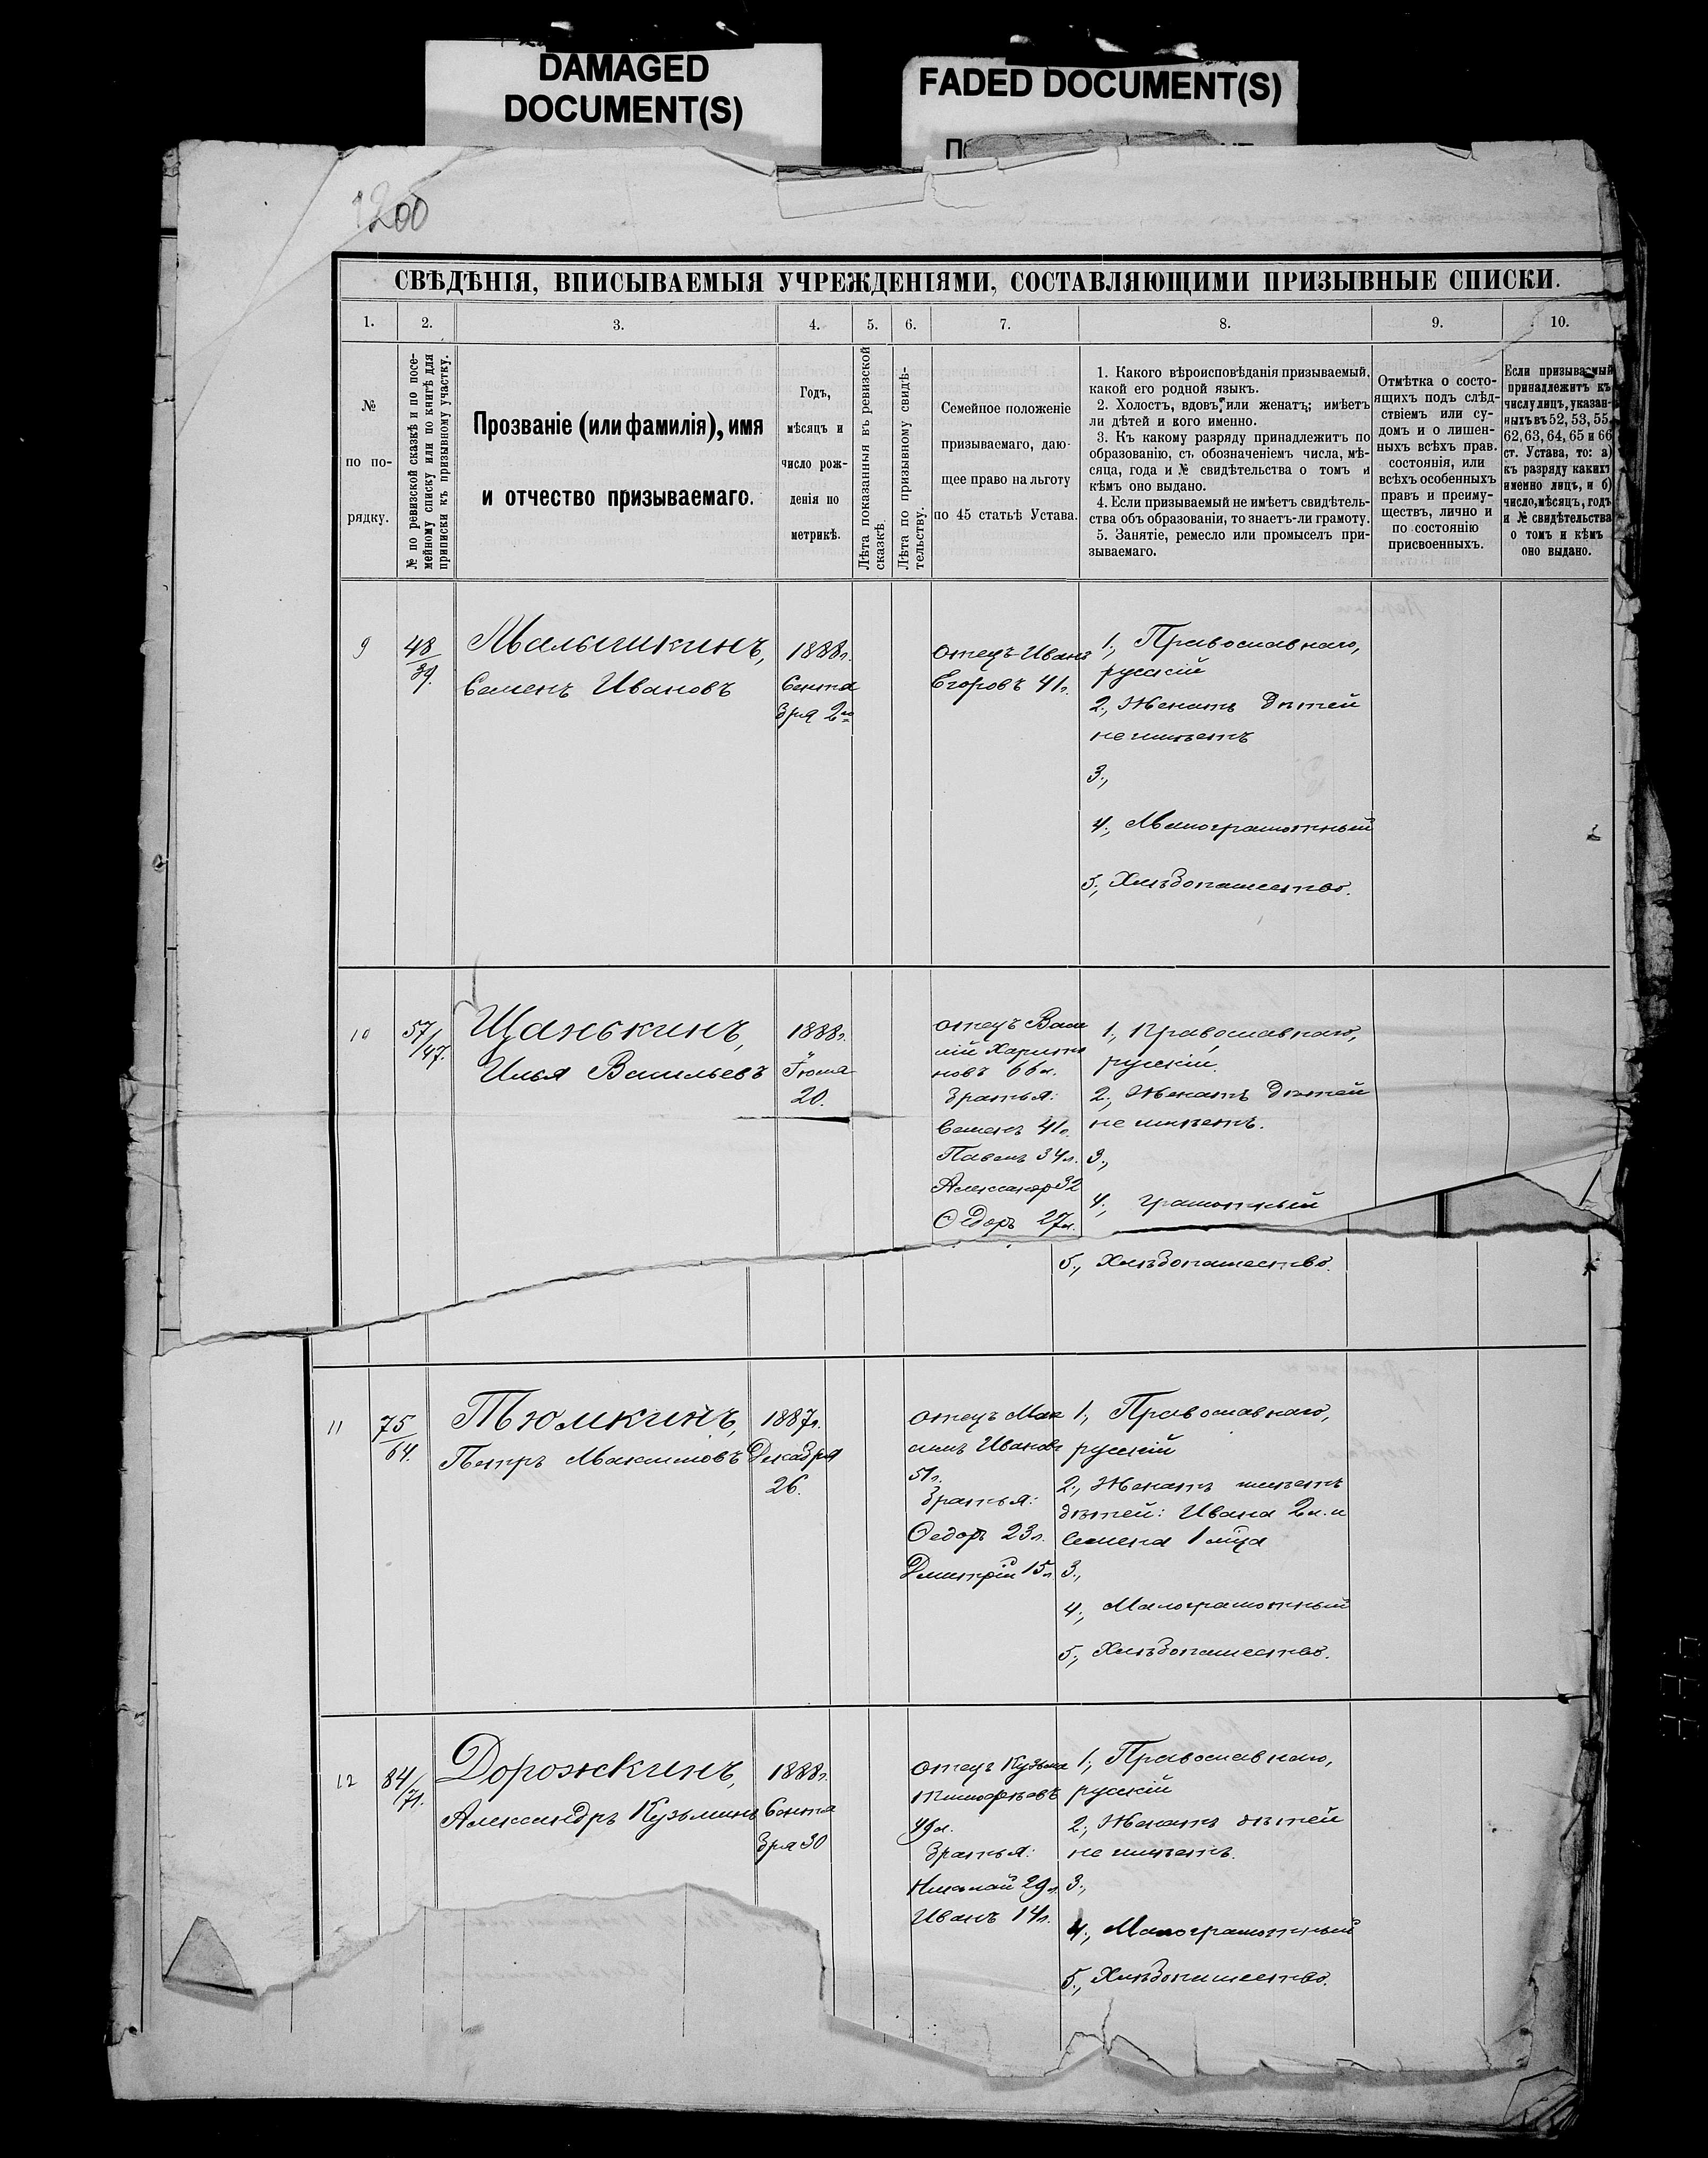 DAMAGED
DOCUMENT(S)
FADED DOCUMENT(S)
1200
СВѢДѢНІЯ, ВПИСЫВАЕМЫЯ УЧРЕЖДЕНІЯМИ, СОСТАВЛЯЮЩИМИ ПРИЗЫВНЫЕ СПИСКИ.
1.
2.
3.
4.
5.
6.
7.
8.
9.
10.
№
по по-
рядку.
№ по ревизской сказкѣ и по посе-
мейному списку или по книгѣ для
приписки къ призывному участку.
Прозваніе (или фамилія), имя
и отчество призываемаго.
Годъ,
мѣсяцъ и
число рож-
денія по
метрикѣ.
Лѣта показанныя въ ревизской
сказкѣ.
Лѣта по призывному свидѣ-
тельству.
Семейное положеніе
призываемаго, даю-
щее право на льготу
по 45 статьѣ Устава.
1. Какого вѣроисповѣданія призываемый,
какой его родной языкъ.
2. Холостъ, вдовъ, или женатъ; имѣетъ
ли дѣтей и кого именно.
3. Къ какому разряду принадлежитъ по
образованію, съ обозначеніемъ числа, мѣ-
сяца, года и № свидѣтельства о томъ и
кѣмъ оно выдано.
4. Если призываемый не имѣетъ свидѣтель-
ства объ образованіи, то знаетъ-ли грамоту.
5. Занятіе, ремесло или промыселъ при-
зываемаго.
Отмѣтка о состо-
ящихъ подъ слѣд-
ствіемъ или су-
домъ и о лишен-
ныхъ всѣхъ прав.
состоянія, или
всѣхъ особенныхъ
правъ и преиму-
ществъ, лично и
по состоянію
присвоенныхъ.
Если призываемый
принадлежитъ къ
числу лицъ, указан-
ныхъ въ 52, 53, 55,
62, 63, 64, 65 и 66
ст. Устава, то: а)
къ разряду какихъ
именно лицъ, и б)
число, мѣсяцъ, годъ
и № свидѣтельства
о томъ и кѣмъ
оно выдано.
9
48/39.
Малышкинъ,
Семенъ Ивановъ
1888г.
Сентя
бря 2го
отецъ Иванъ
Егоровъ 41г.
1., Православнаго,
русскій
2., Женатъ дѣтей
не имѣетъ
3.,
4., Малограмотный
5., Хлѣбопашество.
10
57/47.
Щанькинъ,
Илья Васильевъ
1888г.
Іюля
20.
отецъ Васи
лій Харито
новъ 66л.
братья:
Семенъ 41г.
Павелъ 34л.
Александр 32
Ѳедоръ 27л.
1., Православнаго,
русскій.
2., Женатъ дѣтей
не имѣетъ.
3.,
4., грамотный
5., Хлѣбопашество.
11
75/64.
Тюмкинъ,
Петръ Максимовъ
1887г.
Декабря
26.
отецъ Мак
симъ Ивановъ
51г.
братья:
Ѳедоръ 23л.
Дмитрій 15л.
1., Православнаго,
русскій
2., Женатъ имѣетъ
дѣтей: Ивана 2л. и
Семена 1 мца
3.,
4., Малограмотный
5., Хлѣбопашество.
12
84/71.
Дорожкинъ,
Александръ Кузьминъ
1888г.
Сентя
бря 30
отецъ Кузьма
Тимофѣевъ
49л.
братья:
Николай 29л.
Иванъ 14л.
1., Православнаго,
русскій
2., Женатъ дѣтей
не имѣетъ.
3.,
4., Малограмотный
5., Хлѣбопашество.